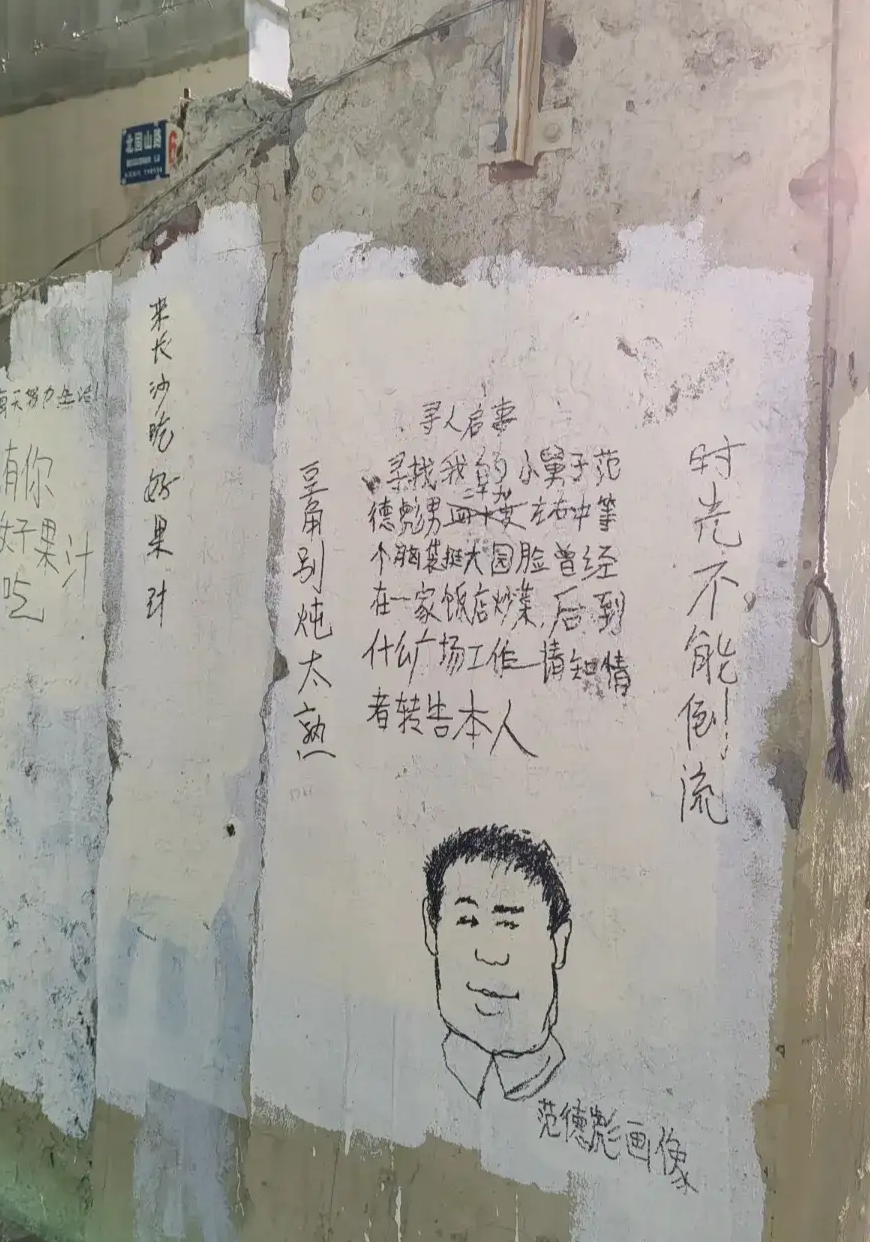 北国山路
6
每天努力生活!
有你
好果汁
吃
来长沙吃好果汁
豆角别炖太熟
寻人启事
寻找我的小舅子范
德彪男二十九左右中等
个脑袋挺大园脸曾经
在一家饭店炒菜,后到
什么广场工作请知情
者转告本人
时光不能倒流!
范德彪画像